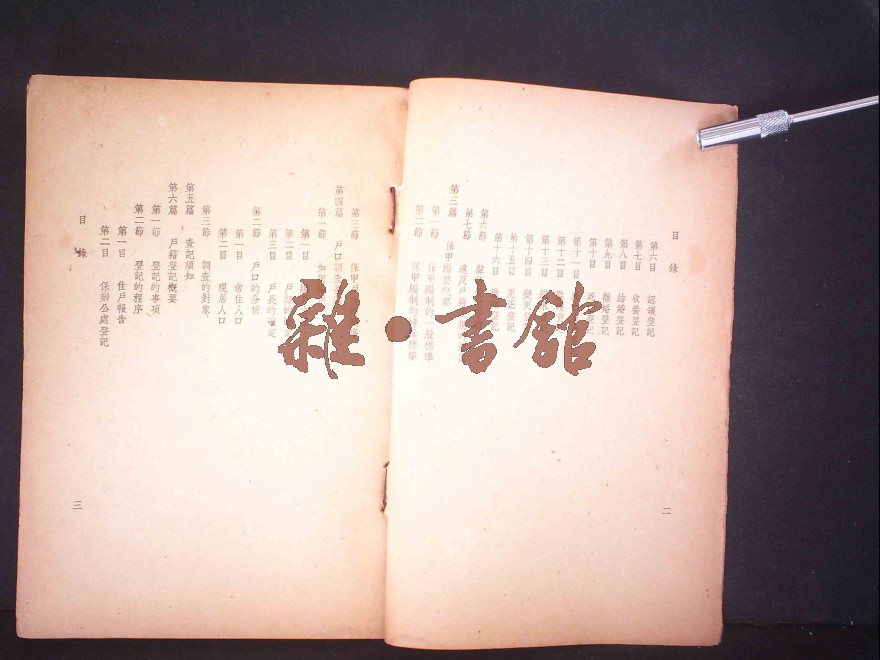 目 錄
第六目 認領登記
第七目 收養登記
第八目 結婚登記
第九目 離婚登記
第十目
第十一目
第十二目
第十三目
第十四目 變更登記
第十五目 更正登記
第十六目 登記
第六節
第七節 違反戶籍
第三篇 保甲編整
第一節 保甲編制的一般標準
第二節 保甲編制的標準
二
第三節 保甲
第四篇 戶口調查
第一節 如何
第一目
第二目
第三目 戶長的確定
第二節 戶口的分析
第一目 常住人口
第二目 現居人口
第三節 調查的對象
第五篇 查記須知
第六篇 戶籍登記概要
第一節 登記的事項
第二節 登記的程序
第一目 住戶報告
第二目 保辦公處登記
目 錄
三
雜·書館